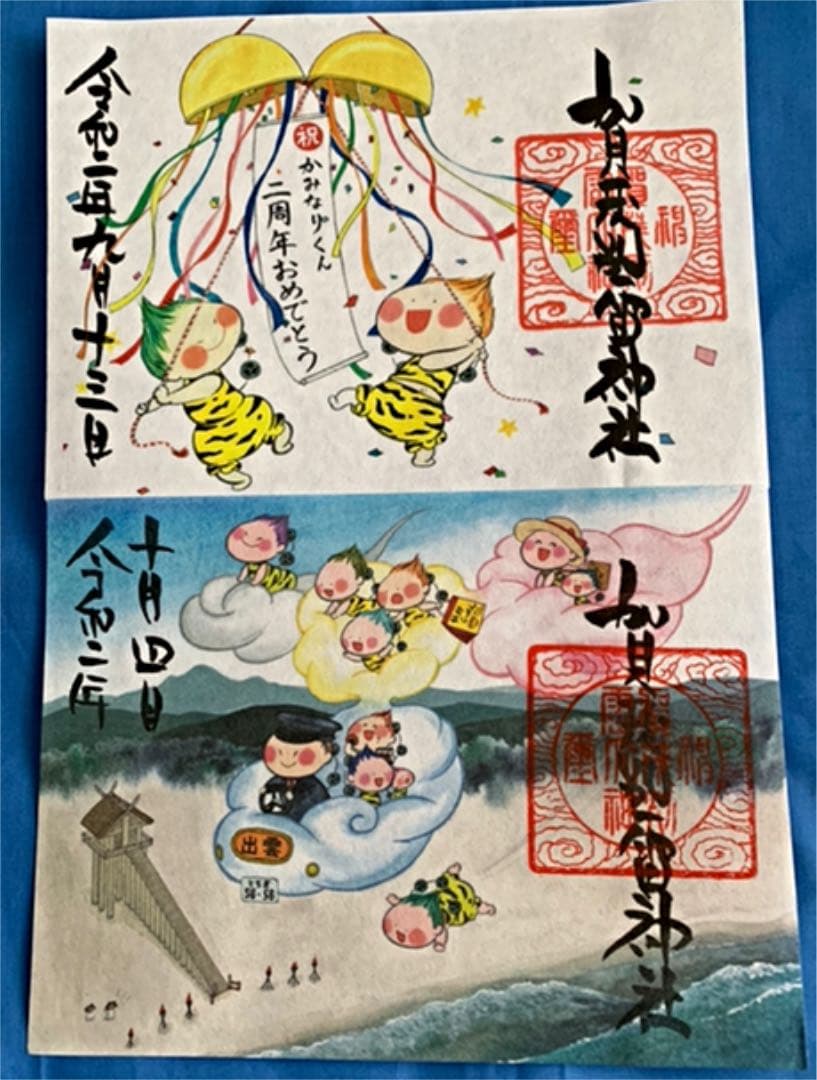 賀茂別雷神社
祝
かみなりくん
二周年おめでとう
令和二年九月十三日
賀茂別雷神社
出雲
とちぎ
十月四日
令和二年